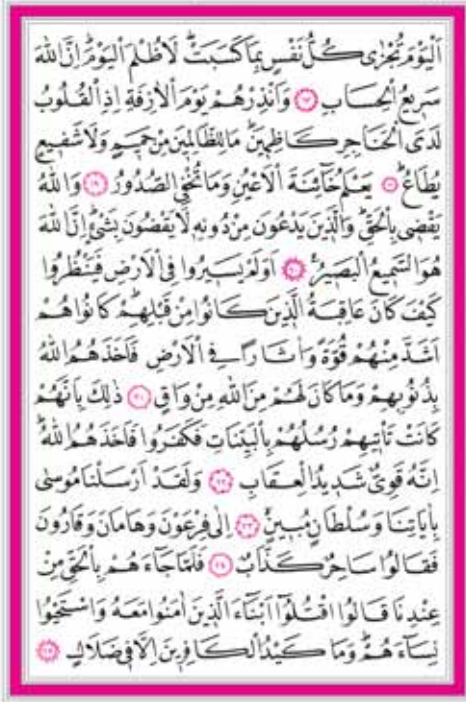 اَلْيَوْمَ تُجْزٰى كُلُّ نَفْسٍ بِمَا كَسَبَتْ لَا ظُلْمَ الْيَوْمَ اِنَّ اللّٰهَ
سَرِيعُ الْحِسَابِ ﴿١٧﴾ وَاَنْذِرْهُمْ يَوْمَ الْاٰزِفَةِ اِذِ الْقُلُوبُ
لَدَى الْحَنَاجِرِ كَاظِمِينَ مَا لِلظَّالِمِينَ مِنْ حَمِيمٍ وَلَا شَفِيعٍ
يُطَاعُ ﴿١٨﴾ يَعْلَمُ خَائِنَةَ الْاَعْيُنِ وَمَا تُخْفِي الصُّدُورُ ﴿١٩﴾ وَاللّٰهُ
يَقْضِي بِالْحَقِّ وَالَّذِينَ يَدْعُونَ مِنْ دُونِهِ لَا يَقْضُونَ بِشَيْءٍ اِنَّ اللّٰهَ
هُوَ السَّمِيعُ الْبَصِيرُ ﴿٢٠﴾ اَوَلَمْ يَسِيرُوا فِي الْاَرْضِ فَيَنْظُرُوا
كَيْفَ كَانَ عَاقِبَةُ الَّذِينَ كَانُوا مِنْ قَبْلِهِمْ كَانُوا هُمْ
اَشَدَّ مِنْهُمْ قُوَّةً وَاٰثَارًا فِي الْاَرْضِ فَاَخَذَهُمُ اللّٰهُ
بِذُنُوبِهِمْ وَمَا كَانَ لَهُمْ مِنَ اللّٰهِ مِنْ وَاقٍ ﴿٢١﴾ ذٰلِكَ بِاَنَّهُمْ
كَانَتْ تَأْتِيهِمْ رُسُلُهُمْ بِالْبَيِّنَاتِ فَكَفَرُوا فَاَخَذَهُمُ اللّٰهُ
اِنَّهُ قَوِيٌّ شَدِيدُ الْعِقَابِ ﴿٢٢﴾ وَلَقَدْ اَرْسَلْنَا مُوسٰى
بِاٰيَاتِنَا وَسُلْطَانٍ مُبِينٍ ﴿٢٣﴾ اِلٰى فِرْعَوْنَ وَهَامَانَ وَقَارُونَ
فَقَالُوا سَاحِرٌ كَذَّابٌ ﴿٢٤﴾ فَلَمَّا جَاءَهُمْ بِالْحَقِّ مِنْ
عِنْدِنَا قَالُوا اقْتُلُوا اَبْنَاءَ الَّذِينَ اٰمَنُوا مَعَهُ وَاسْتَحْيُوا
نِسَاءَهُمْ وَمَا كَيْدُ الْكَافِرِينَ اِلَّا فِي ضَلَالٍ ﴿٢٥﴾